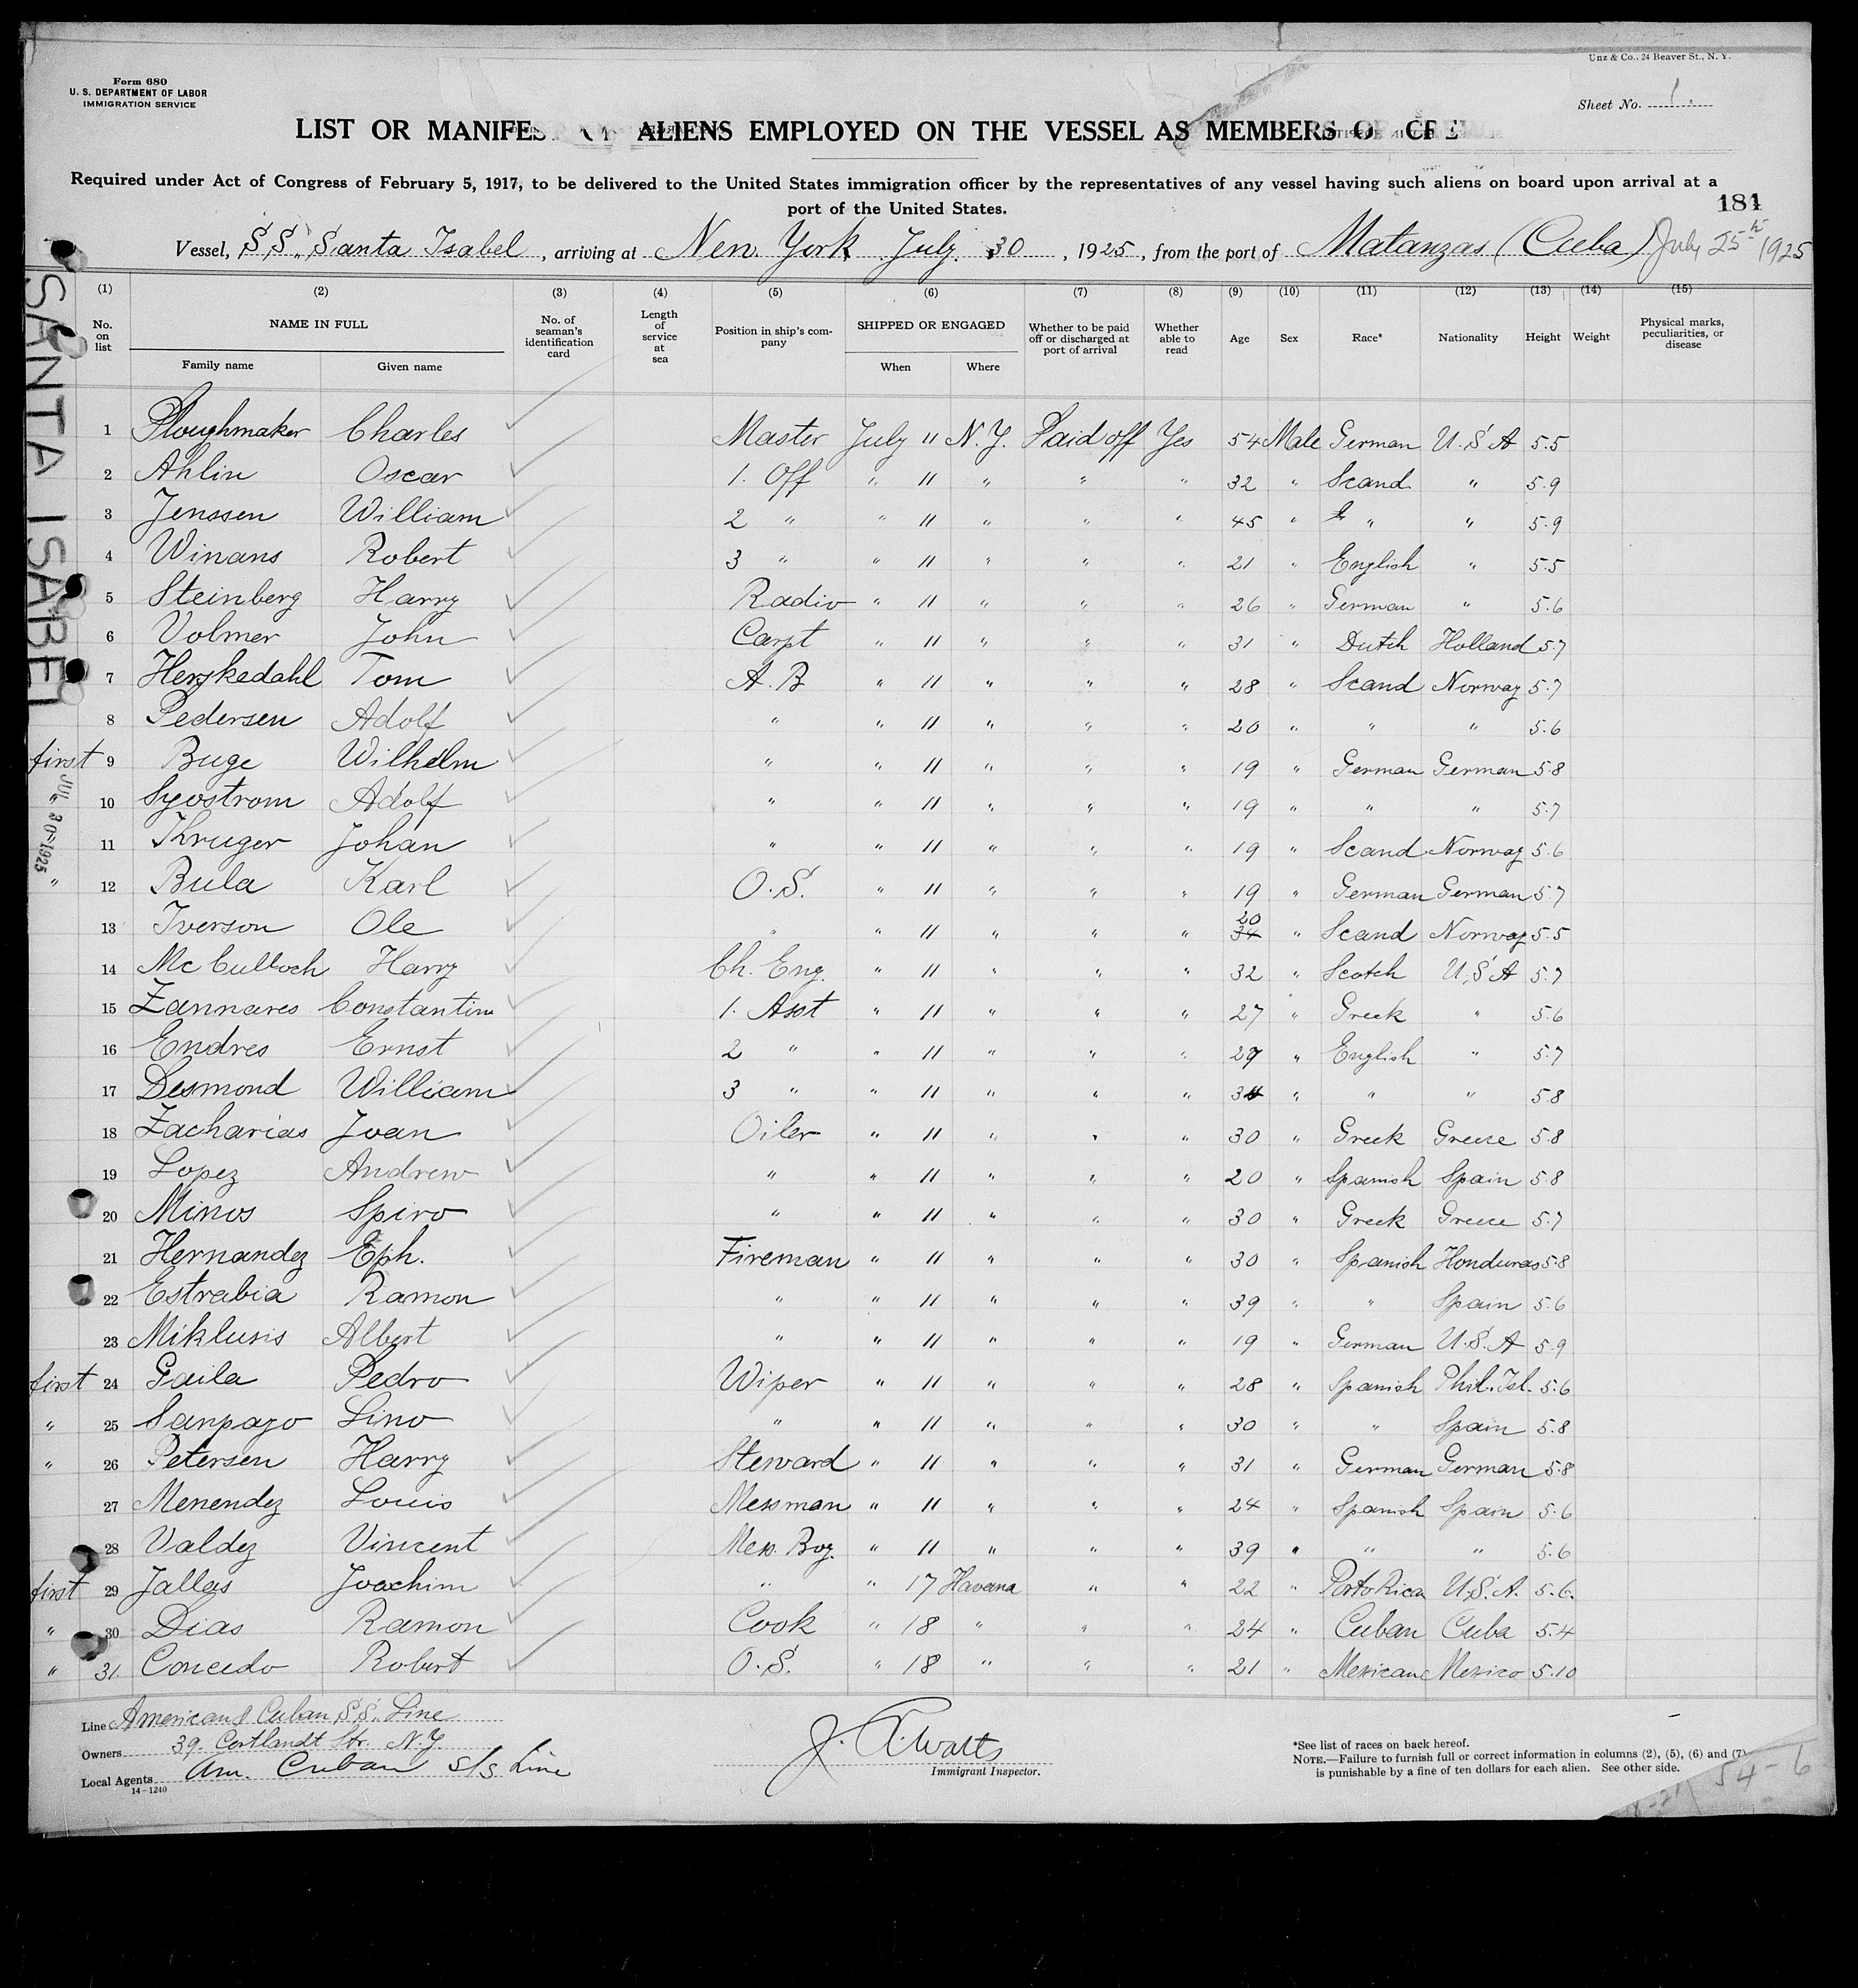 Unz & Co., 24 Beaver St., N. Y.
Form 680
U. S. DEPARTMENT OF LABOR
IMMIGRATION SERVICE
Sheet No. 1.
LIST OR MANIFES ALIENS EMPLOYED ON THE VESSEL AS MEMBERS OF CRE
Required under Act of Congress of February 5, 1917, to be delivered to the United States immigration officer by the representatives of any vessel having such aliens on board upon arrival at a
port of the United States.
181
Vessel, S.S. Santa Isabel, arriving at New York July 30, 1925, from the port of Matanzas (Cuba) July 25th 1925
SANTA ISABEL
(1) (2) (3) (4) (5) (6) (7) (8) (9) (10) (11) (12) (13) (14) (15)
No. on list NAME IN FULL No. of seaman's identification card Length of service at sea Position in ship's company SHIPPED OR ENGAGED Whether to be paid off or discharged at port of arrival Whether able to read Age Sex Race* Nationality Height Weight Physical marks, peculiarities, or disease
Family name Given name When Where
1 Ploughmaker Charles Master July 11 N.Y. Paid off Yes 54 Male German U.S.A 5.5
2 Ahlin Oscar 1. Off " 11 " " " 32 " Scand " 5.9
3 Jenssen William 2 " " 11 " " " 45 " " " 5.9
4 Winans Robert 3 " " 11 " " " 21 " English " 5.5
5 Steinberg Harry Radio " 11 " " " 26 " German " 5.6
6 Volmer John Carpt " 11 " " " 31 " Dutch Holland 5.7
7 Herskedahl Tom A.B " 11 " " " 28 " Scand Norway 5.7
8 Pedersen Adolf " " 11 " " " 20 " " " 5.6
first 9 Buge Wilhelm " " 11 " " " 19 " German German 5.8
JUL 30 1925
" 10 Syvstrom Adolf " " 11 " " " 19 " " " 5.7
11 Kruger Johan " " 11 " " " 19 " Scand Norway 5.6
" 12 Bula Karl O.S. " 11 " " " 19 " German German 5.7
13 Iverson Ole " " 11 " " " 20 34 " Scand Norway 5.5
14 McCulloch Harry Ch. Eng. " 11 " " " 32 " Scotch U.S.A 5.7
15 Zannares Constantin 1. Asst " 11 " " " 27 " Greek " 5.6
16 Endres Ernst 2 " " 11 " " " 29 " English " 5.7
17 Desmond William 3 " " 11 " " " " " " 5.8
18 Zacharias Joan Oiler " 11 " " " 30 " Greek Greece 5.8
19 Lopez Andrew " " 11 " " " 20 " Spanish Spain 5.8
20 Minos Spiro " " 11 " " " 30 " Greek Greece 5.7
21 Hernandez Eph. Fireman " 11 " " " 30 " Spanish Honduras 5.8
22 Estrabia Ramon " " 11 " " " 39 " " Spain 5.6
23 Miklusis Albert " " 11 " " " 19 " German U.S.A 5.9
first 24 Gaila Pedro Wiper " 11 " " " 28 " Spanish Phil. Isl. 5.6
" 25 Sanpayo Lino " " 11 " " " 30 " " Spain 5.8
" 26 Petersen Harry Steward " 11 " " " 31 " German German 5.8
27 Menendez Louis Messman " 11 " " " 24 " Spanish Spain 5.6
28 Valdez Vincent Mess. Boy. " 11 " " " 39 " " " 5.6
first 29 Jallas Joachim " " 17 Havana " " 22 " Porto Rican U.S.A. 5.6.
" 30 Dias Ramon Cook " 18 " " " 24 " Cuban Cuba 5.4
" 31. Concedo Robert O.S. " 18 " " " 21 " Mexican Mexico 5.10
Line American & Cuban S.S. Line
Owners 39. Cortlandt Str. N.Y.
Local Agents Am. Cuban S/S Line
14-1240
J. A. Watts
Immigrant Inspector.
*See list of races on back hereof.
NOTE.—Failure to furnish full or correct information in columns (2), (5), (6) and (7)
is punishable by a fine of ten dollars for each alien. See other side.
54-6